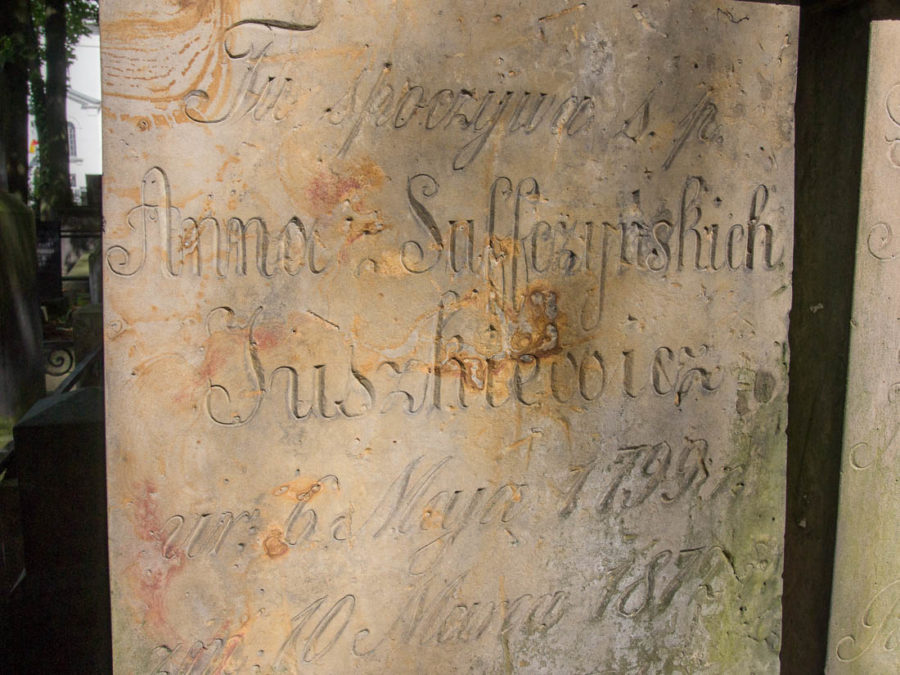 Tu spoczywa s. p.
Anna Suffczyńskich
Juszkiewicz
ur: 6 Maja 1799 r
zm: 10 Marca 187